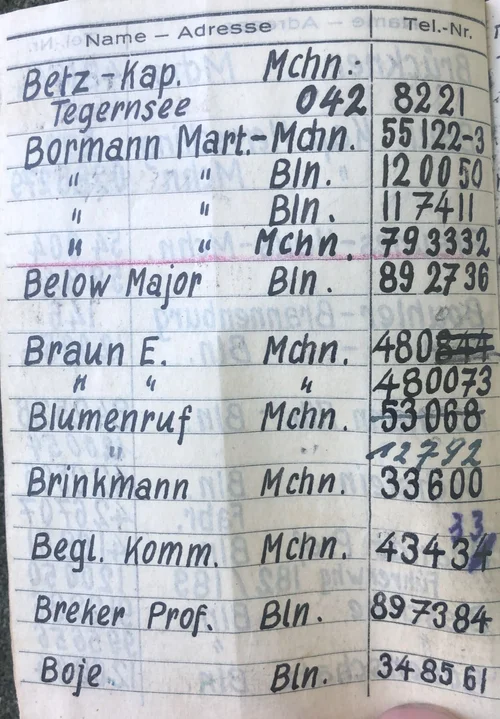 Name – Adresse Tel.-Nr.
Betz-Kap. Mchn.-
Tegernsee 042 8221
Bormann Mart.-Mchn. 55122-3
" " Bln. 120050
" " Bln. 117411
" " Mchn. 793332
Below Major Bln. 892736
Braun E. Mchn. 480844
" " " 480073
Blumenruf Mchn. 53068
" 12792
Brinkmann Mchn. 33600
33
Begl. Komm. Mchn. 43434
Breker Prof. Bln. 897384
Boje Bln. 348561